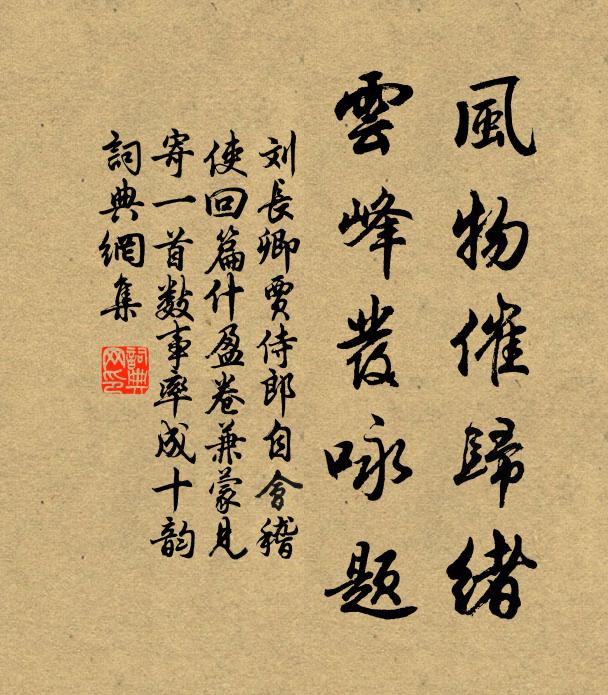 風物催歸緒
雲峰發咏題
刘長卿賈侍郎自會稽
使回篇什盈卷兼蒙見
寄一首数事率成十韵
詞典網集
詞典
网印